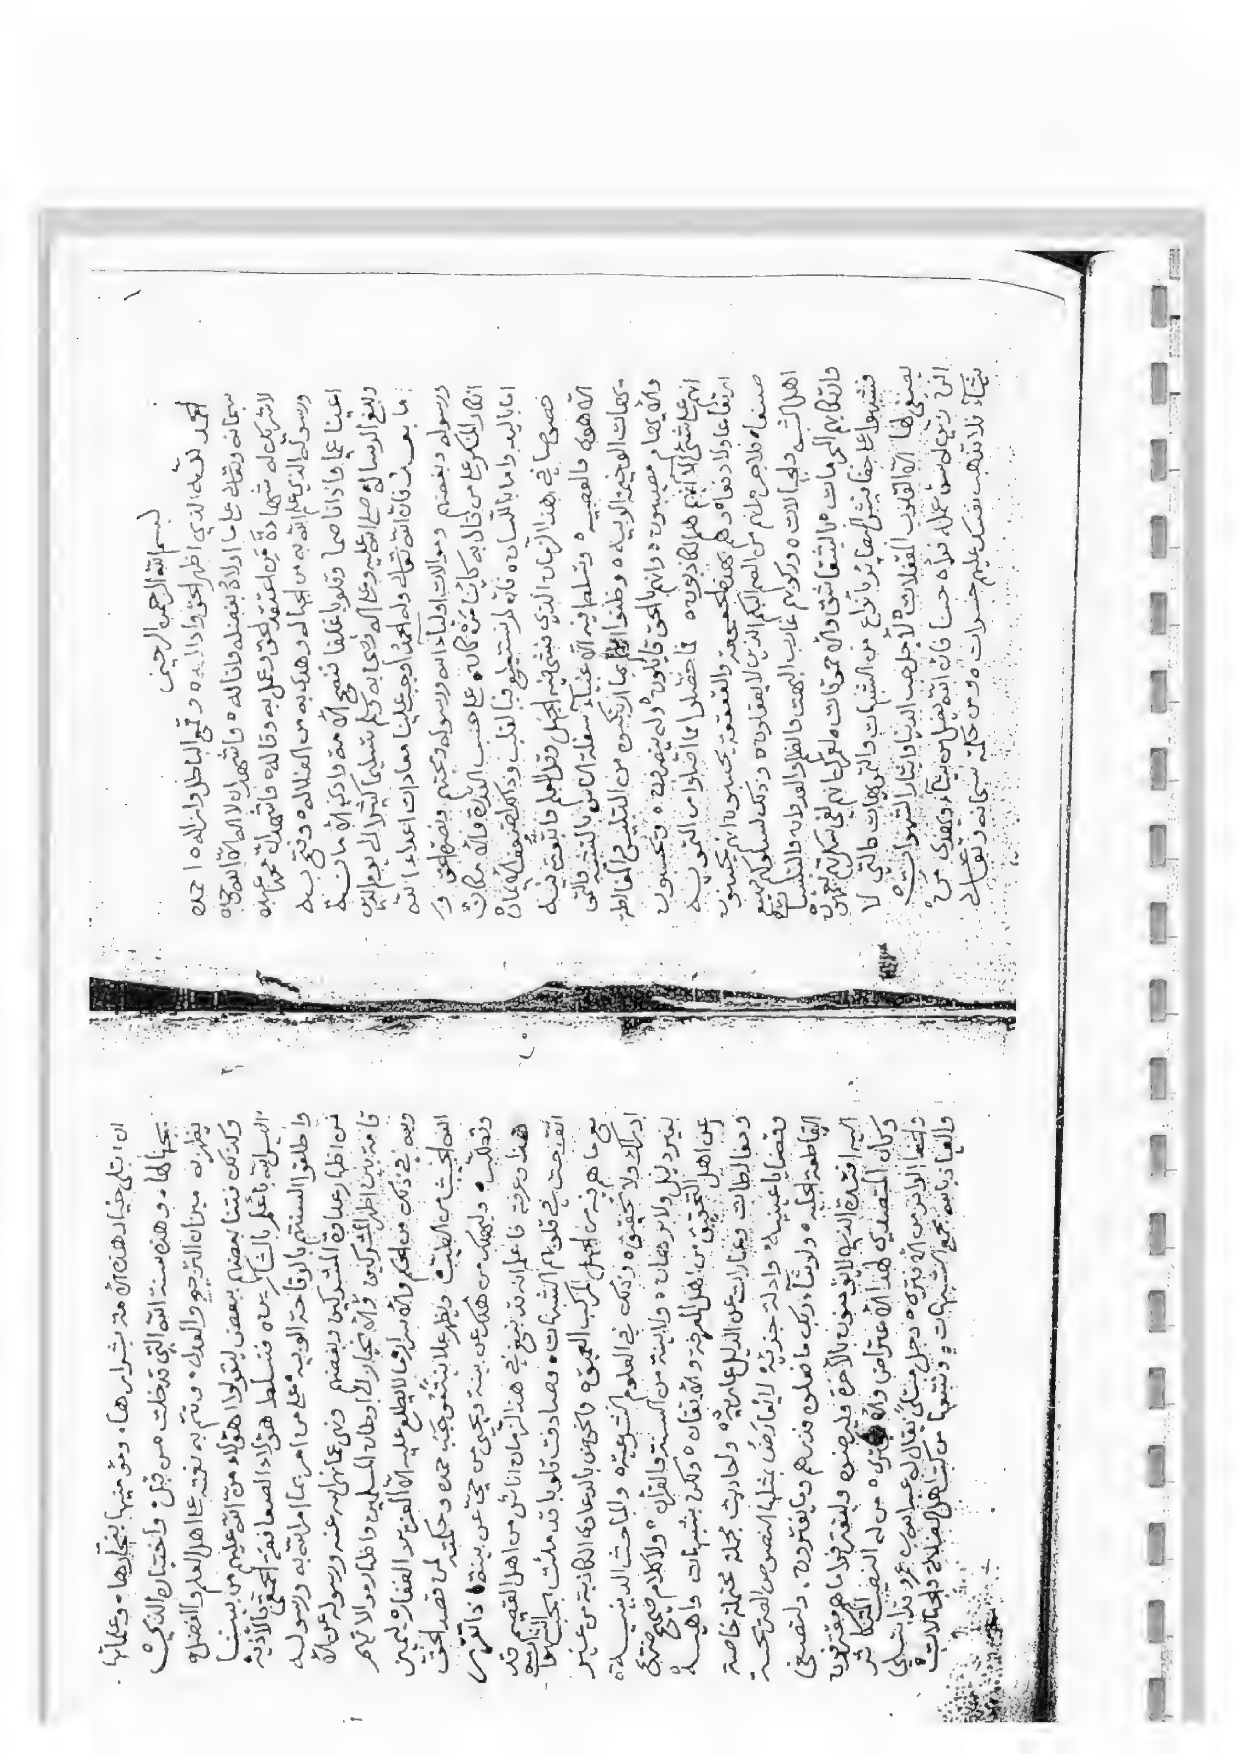 بسم الله الرحمن الرحيم
الحمد لله الذي اظهر الحق واداله و قمع الباطل وازاله ٥ احمده
سبحانه وتعالى على ما اولاه بفضله واناله ٥ واشهد ان لا اله الا الله وحده
لا شريك له شهادة من اعتقد الحق وعمل به وقاله ٥ واشهد ان محمدا عبده
ورسوله الذي علم الله به من الجهاله وهدى به من الضلاله ٥ وفتح به
اعينا عميا واذانا صما وقلوبا غلفا فنصح الامة وادى الامانة
وبلغ الرسالة صلى الله عليه وعلى اله وصحابه وسلم تسليما كثيرا الى يوم الدين
اما بعد فان الله تعالى وله الحمد اوجب علينا معادات اعداء الله
ورسوله وبغضهم وموالات اولياء الله ورسوله ومحبتهم ونصر الحق و
انكار المنكر على من قاد به كائنا من كان على حسب القدرة والامكان
اما باليد واما باللسان ٥ فان لم نستطيع فبالقلب وذلك اضعف الايمان
خصوصا في هذا الزمان الذي فشى فيه الجهل وقل العلم واتبعت فيه
الاهوى والعصبيه ٥ وتسلط فيه الاغبياء سفلة الناس بالتشبيه والتر
يهات الوخيمة الوبيه ٥ وظنوا بما ارتكبوه من التلبيس والمغالطة
والايهام مصيبون ٥ وانهم بالحق قايلون ٥ وله ينصرون ٥ ويحسبون
انهم على شيء الا انهم هم الكاذبون ٥ فاحضلوا مما اضلوا من التمويه
صنعا ٥ فلا جرم انهم من الصم البكم الذين لا يعقلون ٥ وذلك لسلوكهم مهيع
اهل الشبه والجهالات ٥ وركوبهم غارب البهت والظلم والعدوان والتلبيسات
وارتكابهم المحرمات ٥ بالشقاشق والخرقات ٥ لعمرك انهم لفي سكرتهم يعمهون
وشبهوا على خفافيش البصائر بانواع من الشبهات والترهات والتي لا
يصغى لها الا القلوب المقفلات ٥ لاجل حب الدنيا وايثار الشهوات ٥
افمن زين له سوء عمله فرآه حسنا فان الله يضل من يشاء ويهدي من
يشاء فلا تذهب نفسك عليهم حسرات ٥ ومن حكمة سبحانه وتعالى
ان ابتلى خيار هذه الامة بشرارها ٥ ومؤمنيها بفجارها ٥ وعلمائها
بجهالها ٥ وهذه سنة الله التي قد خلت من قبل ٥ واختباره الذي
يظهر به ميزان الترجيح والعدل ٥ وتتم به نعمته على اهل العلم والفضل
وكذلك فتنا بعضهم ببعض ليقولوا اهؤلاء من الله عليهم من بيننا
اليس الله باعلم بالشاكرين ٥ فتسلط هؤلاء الصعافقة الحمقى بالاذية
واطلقوا السنتهم بالوقاحة الوبيه على من امر بما امر الله به ورسوله
من اظهار عداوة المشركين وبغضهم ونهى عما نهى عنه ورسوله عن الا
قامة بين اظهر المشركين والانحياز الى اوطان المسلمين واظهار موالاتهم
وله في ذلك من الحكم والاسرار ما لا يطلع عليه الا العزيز الغفار ٥ ليميز
الله الخبيث من الطيب ٥ ويظهر علامة من يستحق حمده وحكمته لمن قصد الحق
وتطلبه ٥ وليهلك من هلك عن بينة ويحيى من حي عن بينة ٥ اذا تقرر
هذا وعرفت فاعلم انه قد نبغ في هذا الزمان اناس من اهل القصيم قد
انقدحت في قلوبهم الشبهات ٥ وصادفت قلوبا قد ملئت بحب
مع ما هم فيه من الجهل المركب العميق ٥ والخوض بالدعاوى الكاذبة من غير
ادراك ولا تحقيق ٥ وذلك في العلوم الشرعية ٥ والمباحث الدينية ٥
بغير دليل ولا برهان ٥ ولا بينة من السنة والقرآن ٥ ولا كلام صحيح
عن اهل التحقيق من اهل المعرفة والاتقان ٥ ولكن بشبهات واهية
ومغالطات وعبارات عن الدليل عارية ٥ واحاديث مجملة محتملة خاصة
وقضايا عينية ٥ وادلة جزئية ٥ لا يعارض بمثلها النصوص الصريحة
القاطعة الجلية ٥ ولو شاء ربك ما فعلوه فذرهم وما يفترون ٥ ولتصغى
اليه افئدة الذين لا يؤمنون بالآخرة وليرضوه وليقترفوا ما هم مقترفون
وكان المتصدي لهذا الاعتراض من له النصيب المتكاثر
واعتدى رجل منهم يقال له عبد الله بن عمرو قد ابتلي
والعياذ بالله بجمع الشبهات ٥ وتتبعها من كتب اهل الضلالة والجهالات ٥